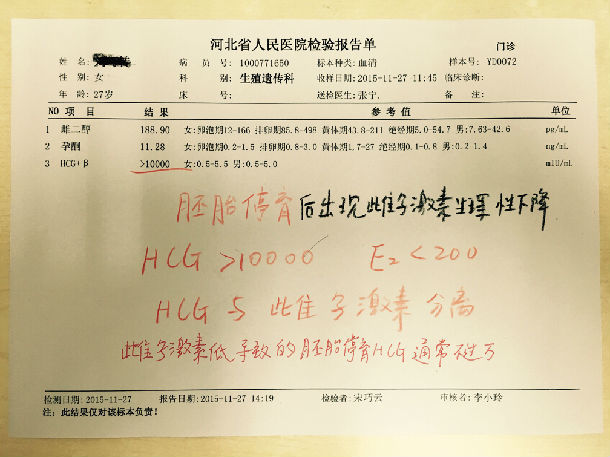 河北省人民医院检验报告单 门诊
姓 名: 病 员 号: 1000771650 标本种类:血清 样本号: YD0072
性 别:女 科 别: 生殖遗传科 收样日期:2015-11-27 11:45 临床诊断:
年 龄:27岁 床 号: 送检医生:张宁 备 注:
NO 项 目 结 果 参 考 值 单位
1 雌二醇 188.90 女:卵泡期12-166 排卵期85.8-498 黄体期43.8-211 绝经期5.0-54.7 男:7.63-42.6 pg/mL
2 孕酮 11.28 女:卵泡期0.2-1.5 排卵期0.8-3.0 黄体期1.7-27 绝经期0.1-0.8 男:0.2-1.4 ng/mL
3 HCG+β >10000 女:0.5-5.5 男:0.5-5.0 mIU/mL
胚胎停育后出现此隹子激素生理性下降
HCG >10000 E2<200
HCG 与 此隹子激素 分离
此隹子激素低导致的胚胎停育HCG通常不过万
检测日期:2015-11-27 报告日期:2015-11-27 14:19 检验者:宋巧云 审核者:李小玲
注: 此结果仅对该标本负责!